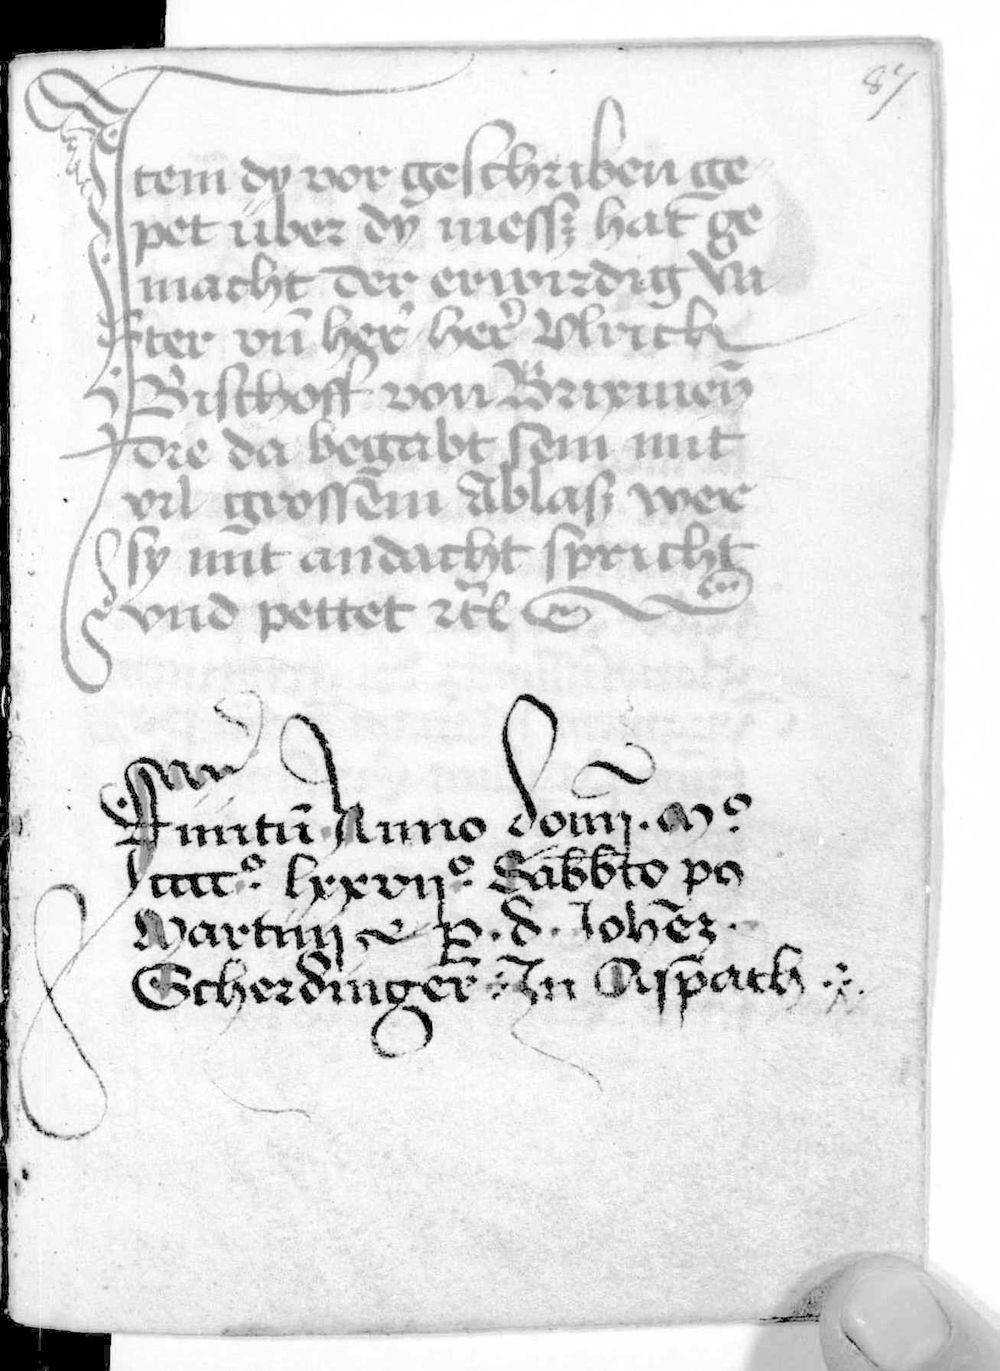 87
Item dy vor geschriben ge
pet über dy messz hat ge
macht der erwirdig va
ter vn̄ her' her' Vlrick
Bischoff von Brixnen̄
die da begabt sein mit
vil grossēm Ablasz wer
sy mit andacht spricht
vnd pettet rc̄
Finitū Anno domīj. Mº
cccc.º lxxvijº. Sab̄b̄to po
Martinj p. d. Joh̄ez.
Scherdinger̄ In Aspach